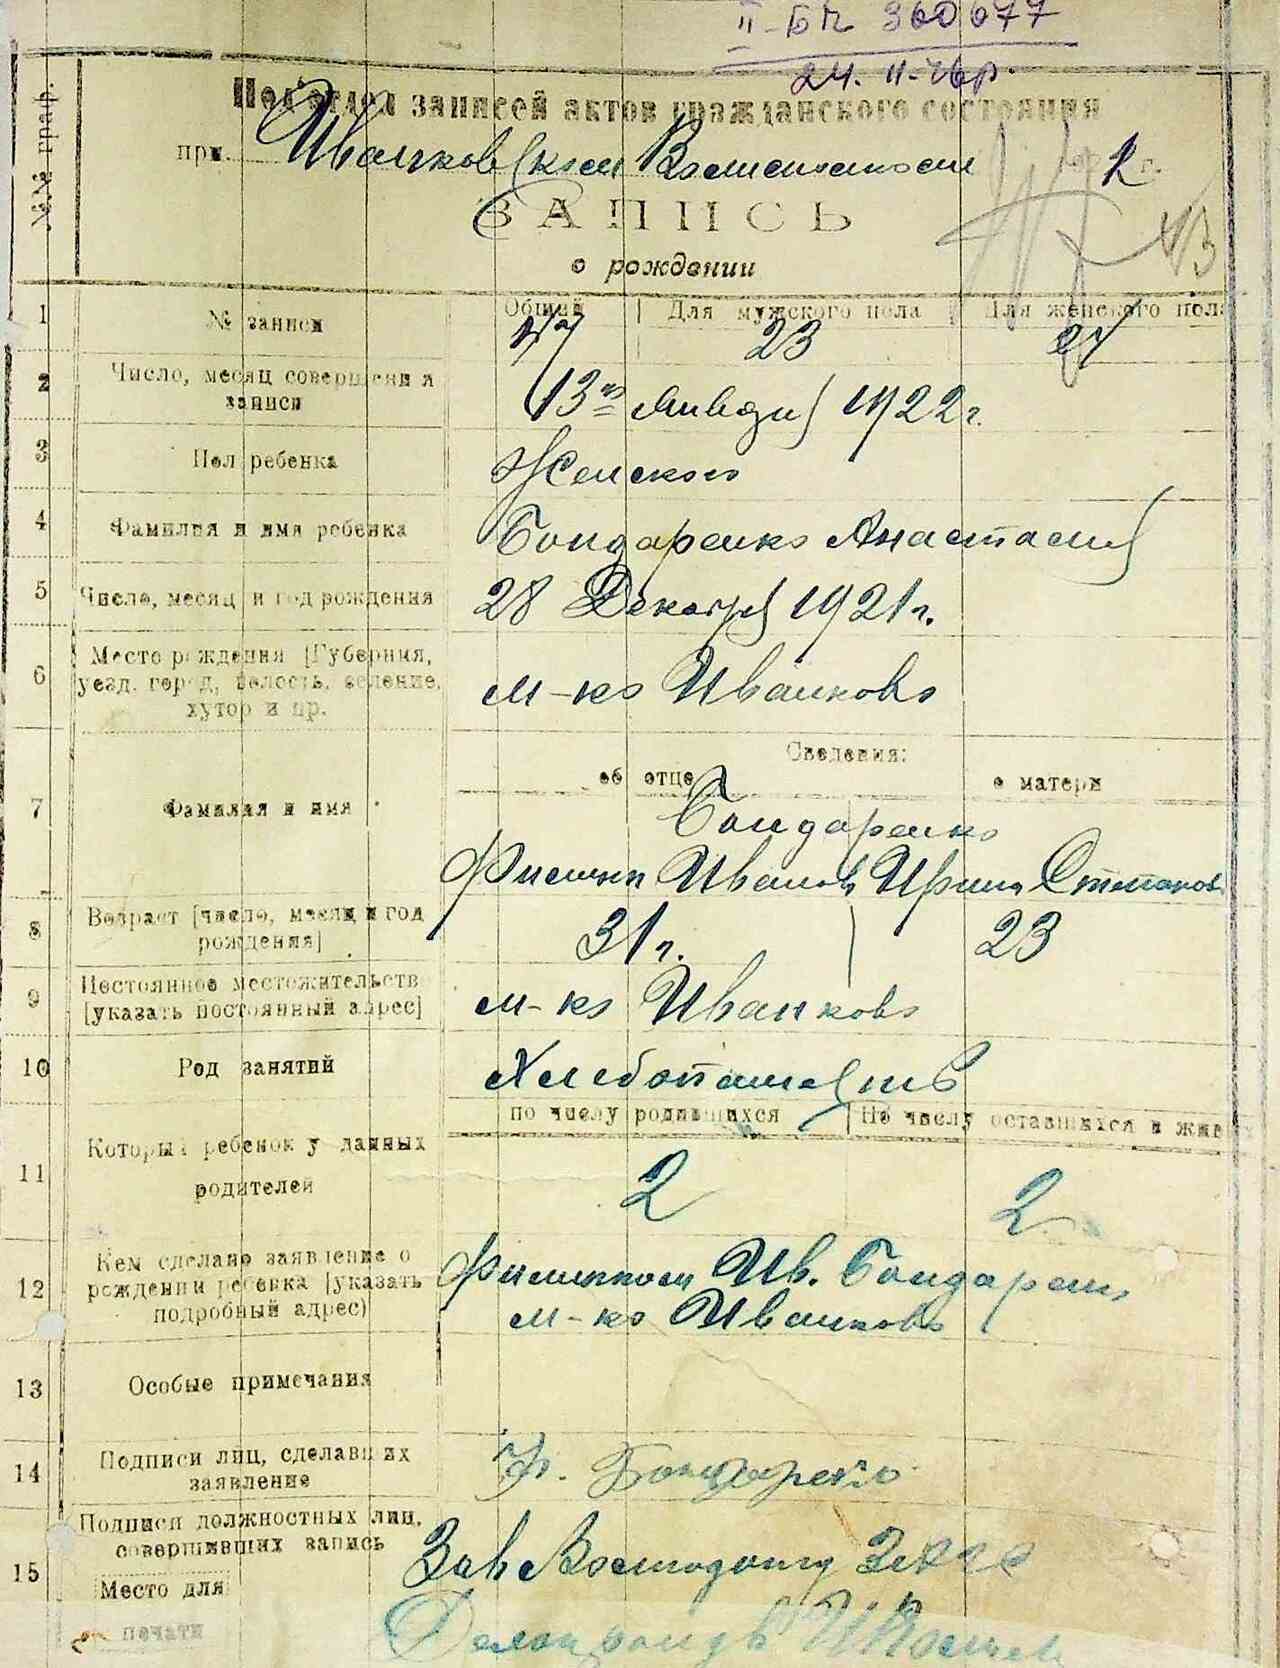 II-БЧ 360677
24. II-46р.
№№ граф.
Под'отдел записей актов гражданского состояния
при Иванковском 2 г.
ЗАПИСЬ
о рождении
13
Общий | Для мужского пола | Для женского пола
1 № записи 47 23 24
2 Число, месяц совершения записи 13го Января 1922 г.
3 Пол ребенка Женского
4 Фамилия и имя ребенка Бондаренко Анастасия
5 Число, месяц и год рождения 28 Декабря 1921 г.
6 Место рождения [Губерния,
уезд, город, волость, селение,
хутор и пр. м-ко Иванково
Сведения:
об отце о матери
7 Фамилия и имя Бондаренко
Филипп Иванов Ирина Степанов
8 Возраст [число, месяц и год
рождения] 31 г. 23
9 Постоянное местожительств
[указать постоянный адрес] м-ко Иванково
10 Род занятий Хлебопашество
по числу родившихся | По числу оставшихся в жив
11 Который ребенок у данных
родителей 2 2
12 Кем сделано заявление о
рождении ребенка [указать
подробный адрес) Филиппом Ив. Бондарен
м-ко Иванково
13 Особые примечания
14 Подписи лиц, сделавших
заявление Ф. Бондаренко
15 Подписи должностных лиц,
совершивших запись Зав
Место для
печати Делопроизв